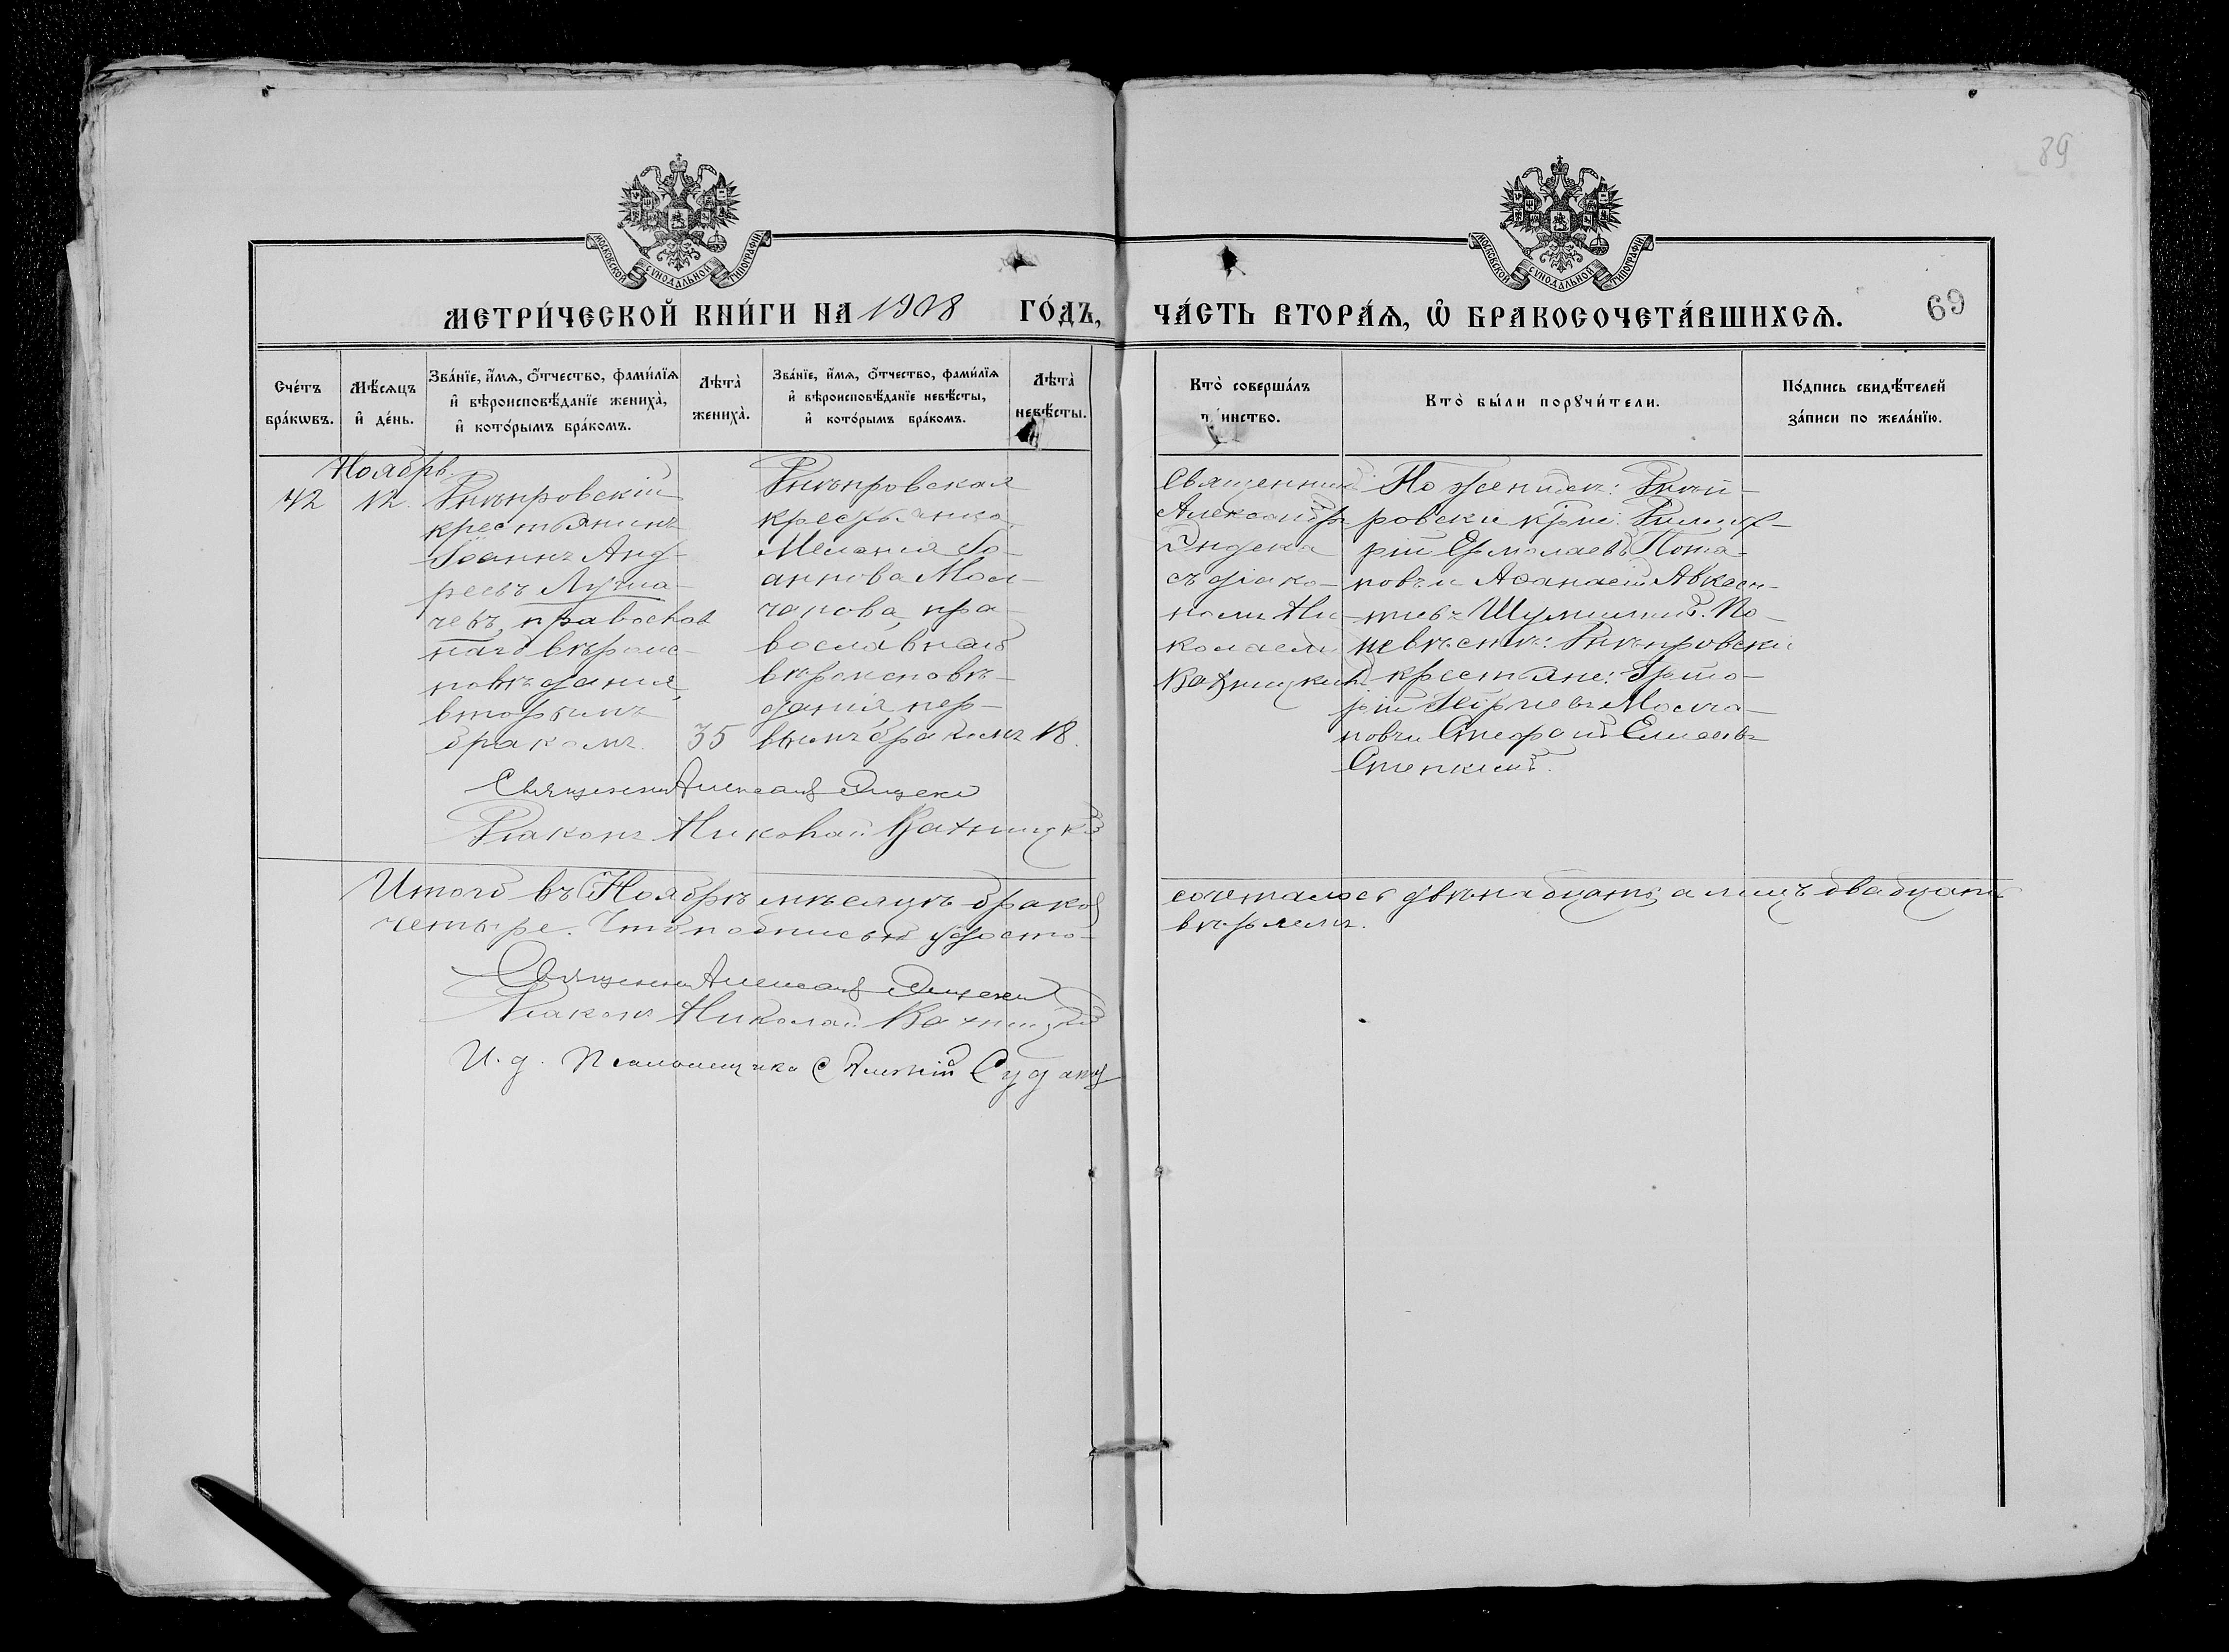 89
МОСКОВСКОЙ СѴНОДАЛЬНОЙ ТИПОГРАФІИ
МОСКОВСКОЙ СѴНОДАЛЬНОЙ ТИПОГРАФІИ
МЕТРИ́ЧЕСКОЙ КНИ́ГИ НА 1908 ГО́ДЪ,
ЧА́СТЬ ВТОРА́Ѧ, Ѡ҆ БРАКОСОЧЕТА́ВШИХСѦ.
69
Сче́тъ бра́кѡвъ.
Мѣ́сяцъ и҆ де́нь.
Зва́нїе, и҆́мя, ѻ҆́тчество, фами́лїя
и҆ вѣроисповѣ́данїе жениха̀,
и҆ кото́рымъ бра́комъ.
Лѣта̀ жениха̀.
Зва́нїе, и҆́мя, ѻ҆́тчество, фами́лїя
и҆ вѣроисповѣ́данїе невѣ́сты,
и҆ кото́рымъ бра́комъ.
Лѣта̀ невѣ́сты.
Кто̀ соверша́лъ
инство.
Кто̀ бы́ли порꙋчи́тели.
По́дпись свидѣ́телей
за́писи по жела́нїю.
Ноябрь
42
12.
Днѣпровскій
крестьянинъ
Іоаннъ Анд-
реевъ Лупа-
чевъ, православ
наго вѣроис-
повѣданія,
вторымъ
бракомъ.
35
Днѣпровская
крестьянка
Меланія Іо-
аннова Мол-
чанова, пра-
вославнаго
вѣроисповѣ-
данія, пер-
вымъ бракомъ
18.
Священник
Александр
Эндека
съ діако-
номъ Ни-
колаемъ
Вахницкимъ
По женихѣ: Днѣп-
ровскіе крес. Димит-
рій Ермолаевъ Пота-
повъ и Аѳанасій Авксен-
тіевъ Шумилинъ. По
невѣстѣ: Днѣпровскіе
крестьяне: Григо-
рій Молча-
новъ и Стефанъ Елисеевъ
Священник Александр Эндека
Діаконъ Николай Вахницкій
Итого въ Ноябрѣ мѣсяцѣ браковъ
сочеталось двѣнадцать, а лицъ двадцать
четыре. Что подписью удосто-
вѣряемъ.
Священник Александр Эндека
Діаконъ Николай Вахницкій
И. д. Псаломщика